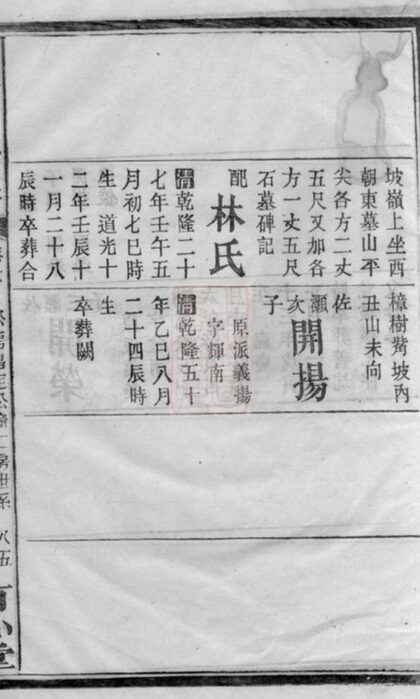 坡嶺上坐西
朝東墓山平
尖各方二丈
五尺又加各
方一丈五尺
石墓碑記
配林氏
清乾隆二十
七年壬午五
月初七巳時
生 道光十
二年壬辰十
一月二十八
辰時卒葬合
樟樹觜坡內
丑山未向
佐灝次子
開揚
原派義揚
字輝南
清乾隆五十
年乙巳八月
二十四辰時
生
卒葬闕
房世系 八五